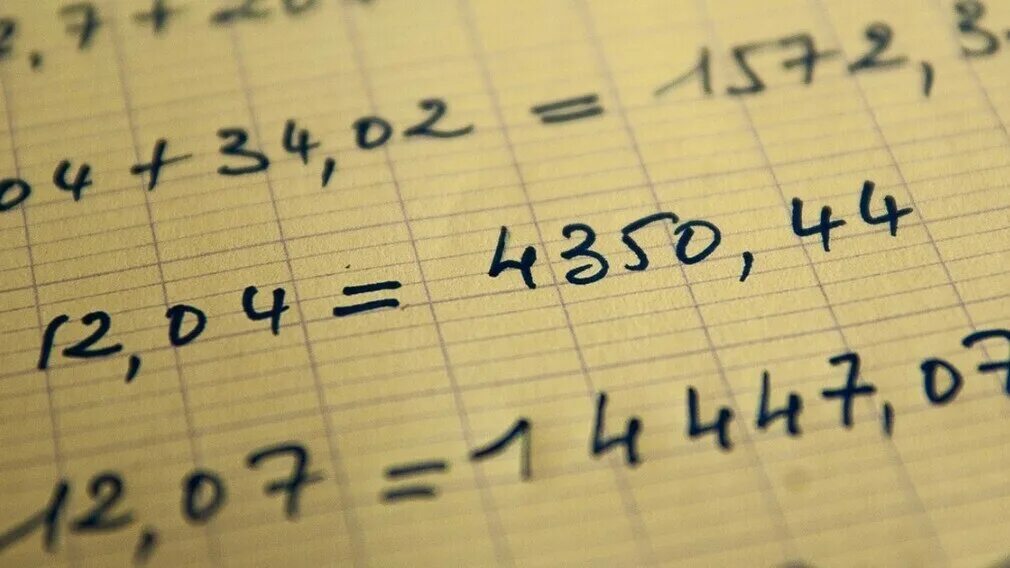 2,7 + 20
04 + 34,02 = 1572,3
12,04 = 4350,44
12,07 = 14447,07